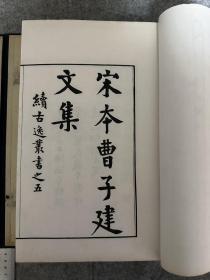 宋本曹子建
文集
續古逸叢書之五